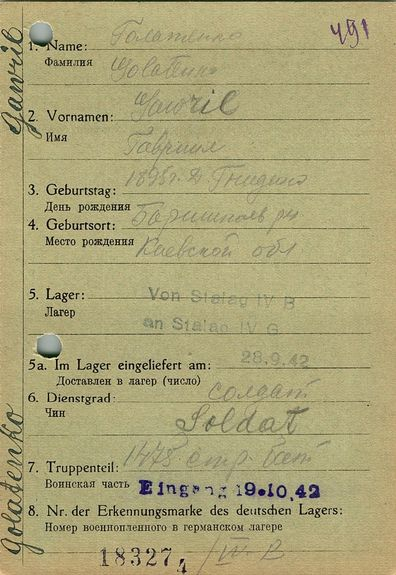 491
Gawril
Golatenko
1. Name: Голатенко
Фамилия
2. Vornamen: Gawril
Имя
Гавриил
3. Geburtstag: 1895 г. Д Гнидено
День рождения
4. Geburtsort:
Место рождения
Киевской обл
5. Lager: Von Stalag IV B
Лагер
an Stalag IV G
5a. Im Lager eingeliefert am: 28.9.42
Доставлен в лагер (число)
6. Dienstgrad: солдат
Чин
Soldat
7. Truppenteil: 1478 стр. бат
Воинская часть
Eingang 19.10.42
8. Nr. der Erkennungsmarke des deutschen Lagers:
Номер военнопленного в германском лагере
18327 / IV B